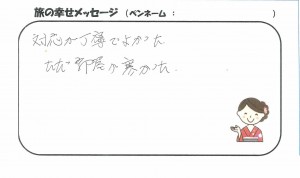 旅の幸せメッセージ (ペンネーム : )
対応が丁寧でよかった
ただ部屋が寒かった